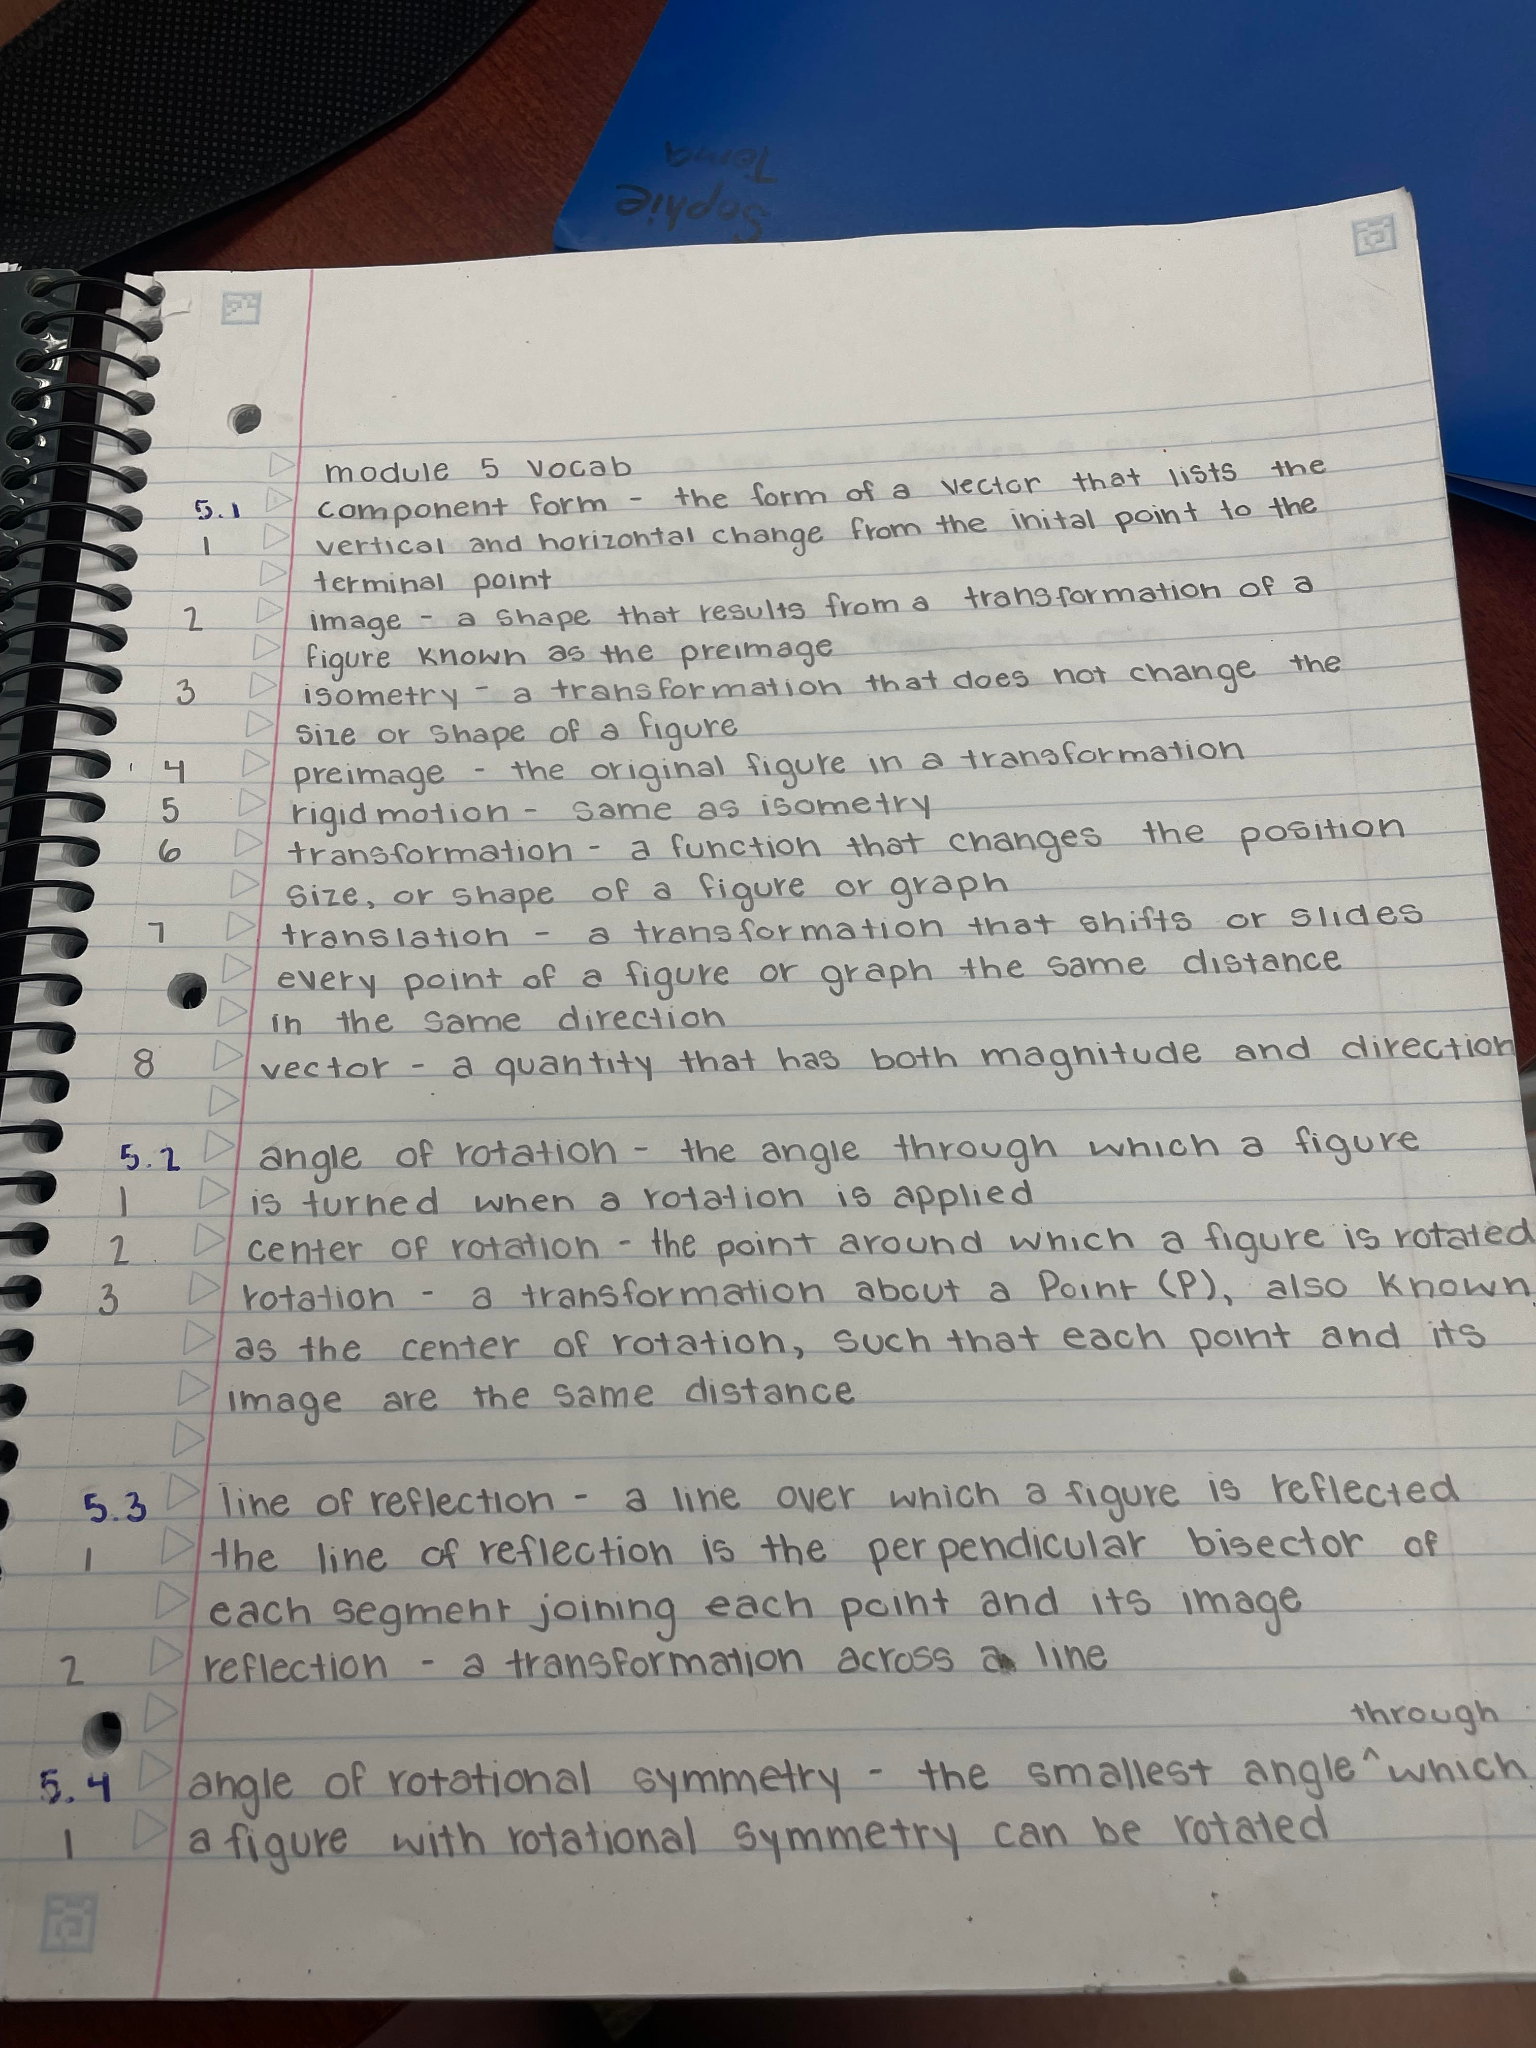 Sophie
Toma
module 5 vocab
5.1 component form - the form of a vector that lists the
1 vertical and horizontal change from the inital point to the
terminal point
2 image - a shape that results from a transformation of a
figure known as the preimage
3 isometry - a transformation that does not change the
size or shape of a figure
4 preimage - the original figure in a transformation
5 rigid motion - same as isometry
6 transformation - a function that changes the position
size, or shape of a figure or graph
7 translation - a transformation that shifts or slides
every point of a figure or graph the same distance
in the same direction
8 vector - a quantity that has both magnitude and direction
5.2 angle of rotation - the angle through which a figure
1 is turned when a rotation is applied
2 center of rotation - the point around which a figure is rotated
3 rotation - a transformation about a Point (P), also known
as the center of rotation, such that each point and its
image are the same distance
5.3 line of reflection - a line over which a figure is reflected
1 the line of reflection is the perpendicular bisector of
each segment joining each point and its image
2 reflection - a transformation across a line
through
5.4 angle of rotational symmetry - the smallest angle ^ which
1 a figure with rotational symmetry can be rotated